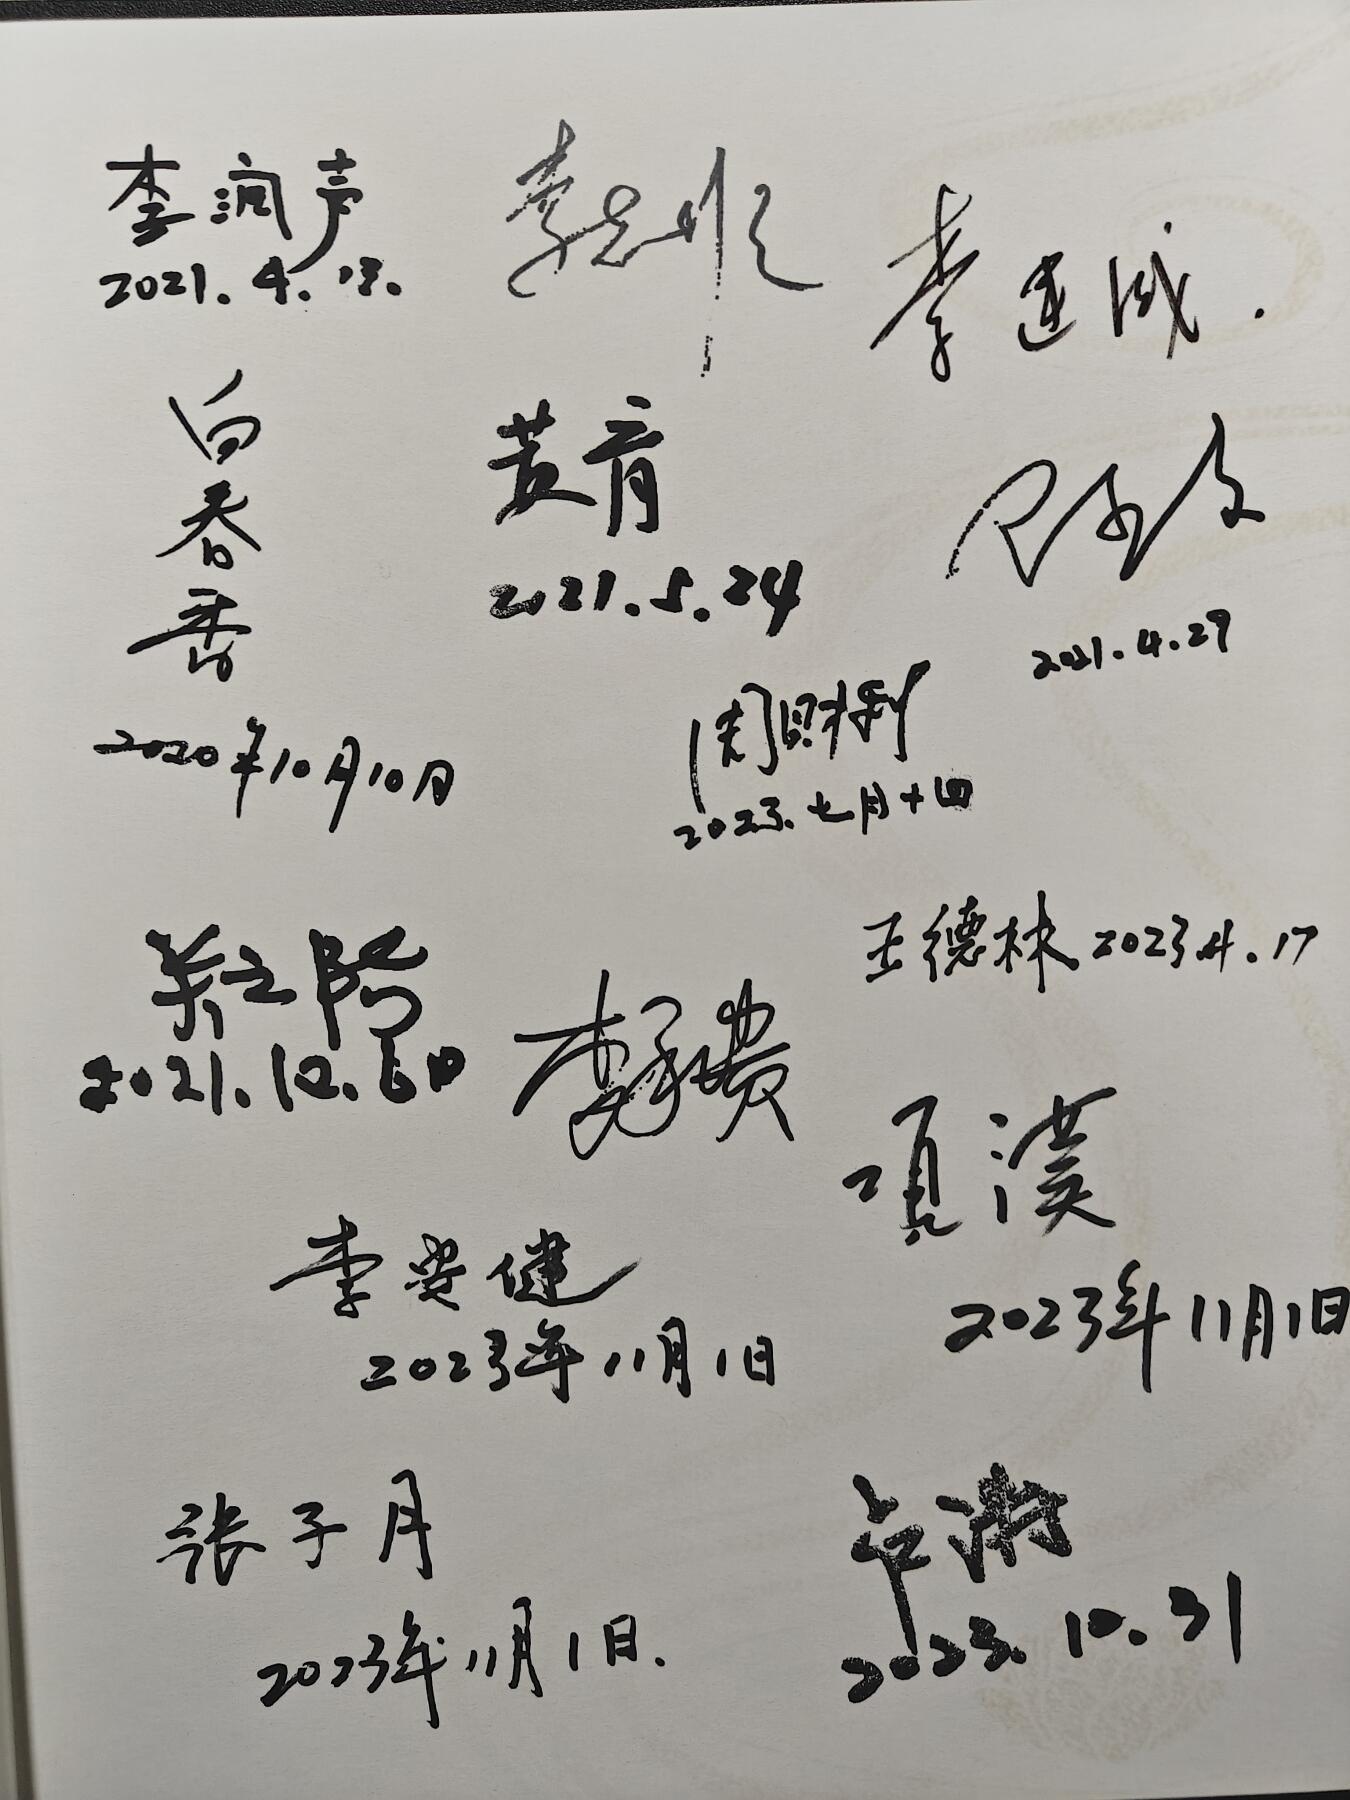 李润声
2021.4.13.
李志顺
李连成.
白春香
2020年10月10日
黄育
2021.5.24
2021.4.29
周财利
2023.七月十四
王德林 2023.4.17
2021.12.6日
李承贵
項漢
2023年11月1日
李安健
2023年11月1日
张子月
2023年11月1日.
2023.10.31